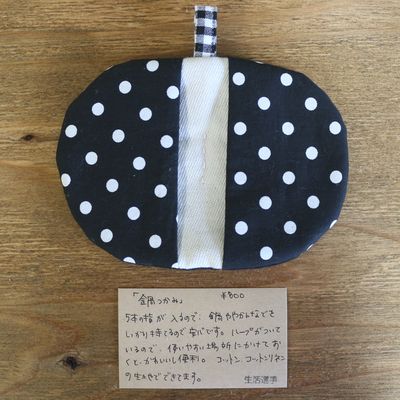 「鍋つかみ」 ¥800
5本の指が入るので、鍋ややかんなどを
しっかり持てるので安心です。ループがついて
いるので、使いやすい場所にかけてお
くと、かわいいし便利。コットン、コットンリネン
の生地でできてます。
生活選季